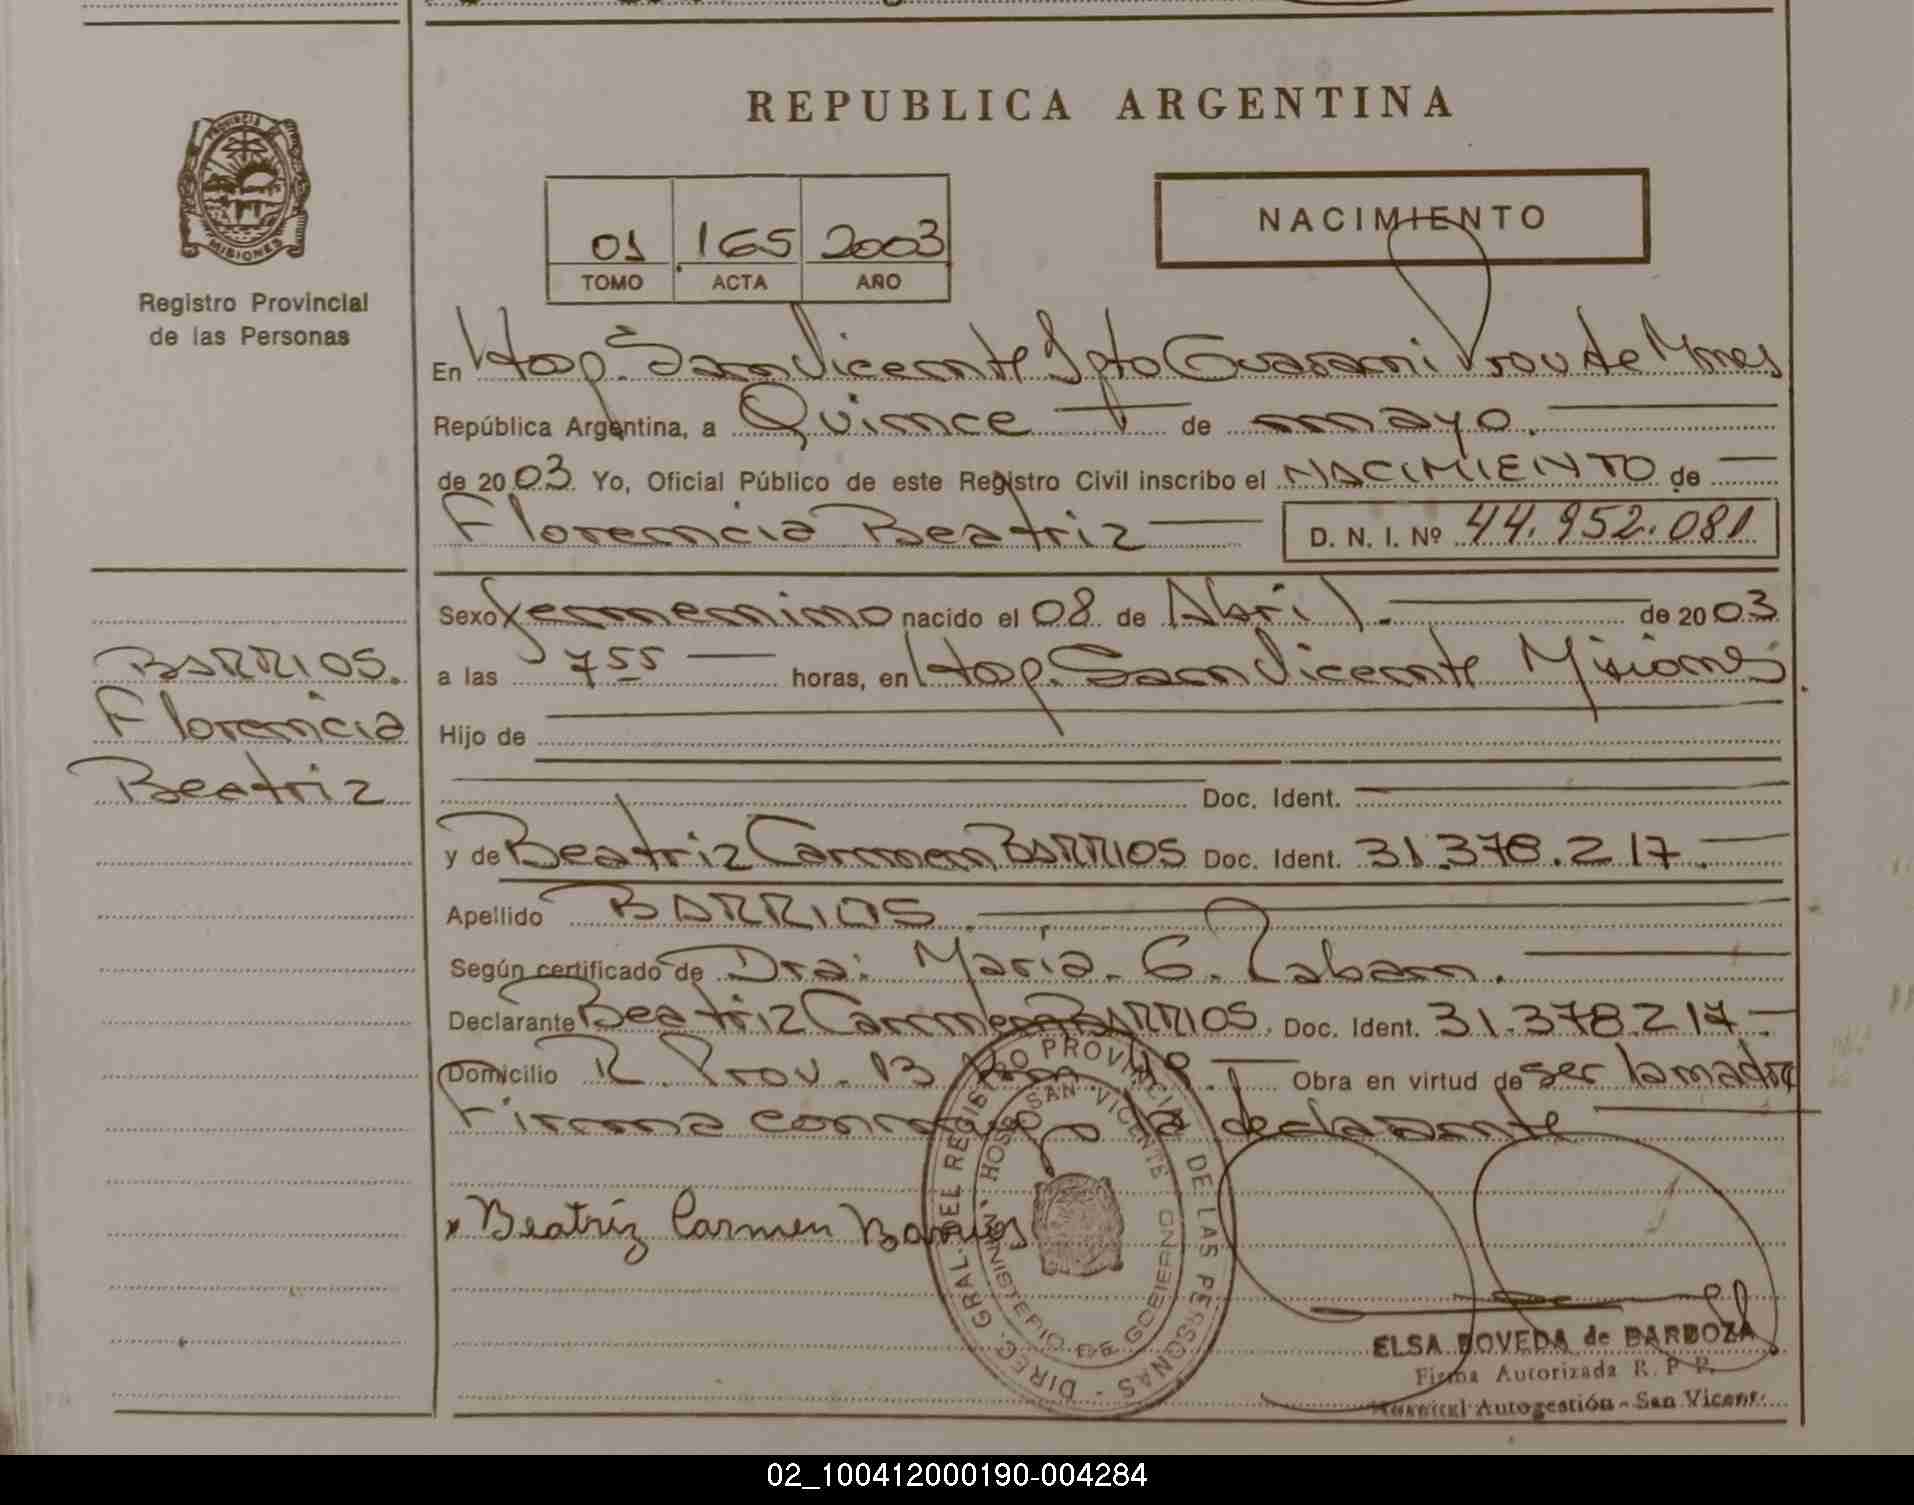 REPUBLICA ARGENTINA
PROVINCIA DE
MISIONES
Registro Provincial
de las Personas
01 165 2003
TOMO ACTA AÑO
NACIMIENTO
En Hosp. San Vicente Dpto Guarani Prov de Mnes
República Argentina, a Quince de mayo.
de 2003 Yo, Oficial Público de este Registro Civil inscribo el NACIMIENTO de
Florencia Beatriz D. N. I. Nº 44.952.081
Sexo femenino nacido el 08 de Abril. de 2003
a las 7 55 horas, en Hosp. San Vicente Misiones
Hijo de
Doc. Ident.
y de Beatriz Carmen BARRIOS Doc. Ident. 31.378.217.
Apellido BARRIOS.
Según certificado de Dra: María G.
Declarante Beatriz Carmen BARRIOS. Doc. Ident. 31.378.217
Domicilio R. Prov. 13 Obra en virtud de ser la madre
Firma conmigo la declarante
BARRIOS.
Florencia
Beatriz
x Beatriz Carmen Barrios
DIREC. GRAL. DEL REGISTRO PROVINCIAL DE LAS PERSONAS
HOSP. SAN VICENTE
MINISTERIO DE GOBIERNO
ELSA BOVEDA de BARBOZA
Firma Autorizada R. P. P.
Hospital Autogestión - San Vicente
02_100412000190-004284